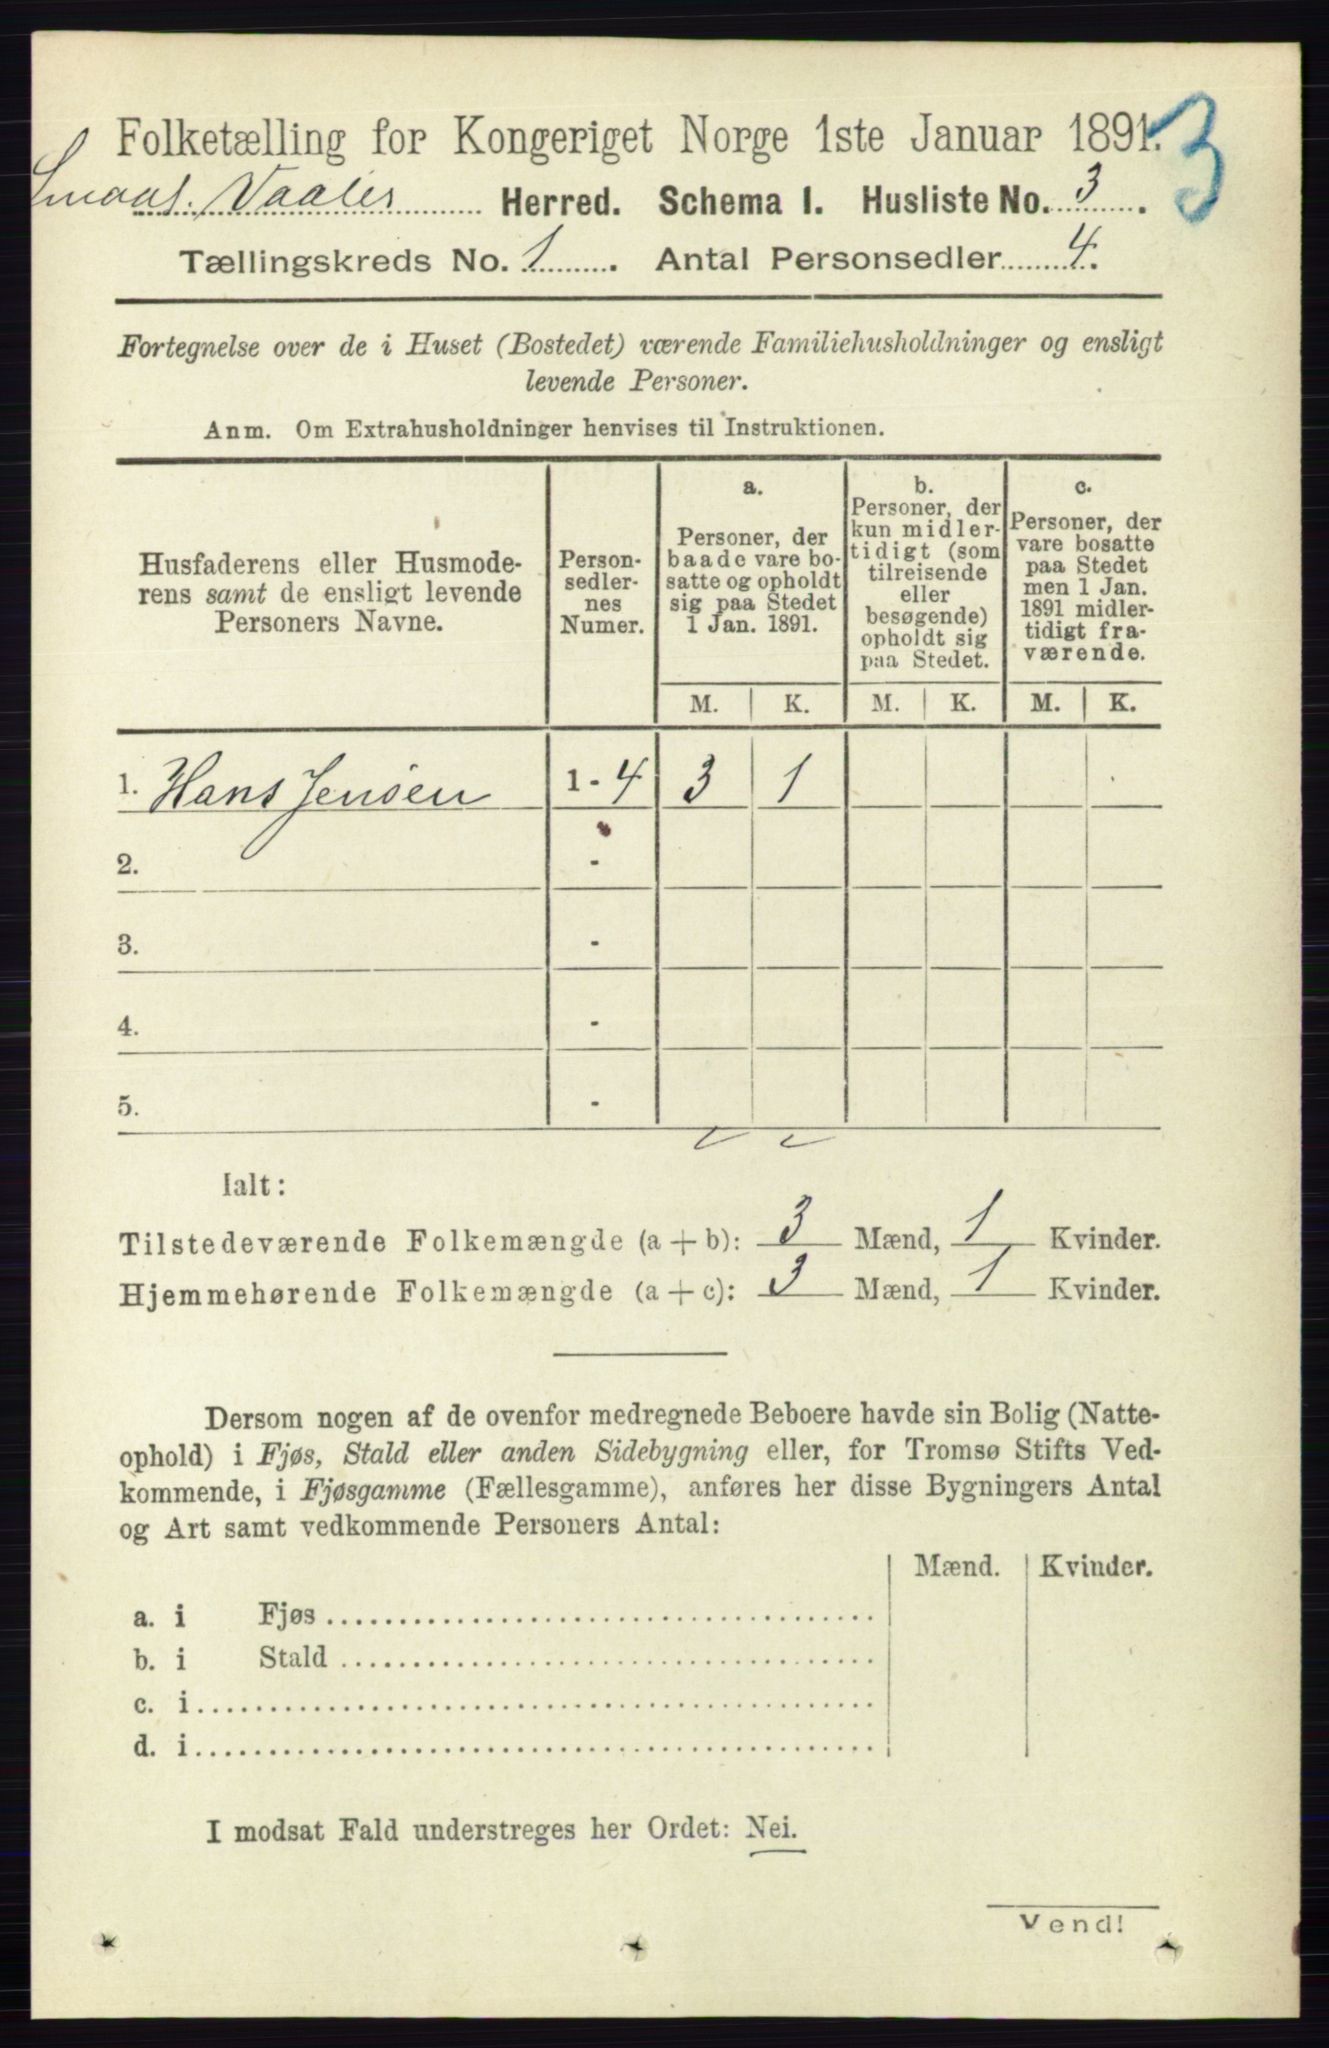 Folketælling for Kongeriget Norge 1ste Januar 1891.
3
Smaal. Vaaler Herred. Schema I. Husliste No. 3.
Tællingskreds No. 1. Antal Personsedler 4.
Fortegnelse over de i Huset (Bostedet) værende Familiehusholdninger og ensligt
levende Personer.
Anm. Om Extrahusholdninger henvises til Instruktionen.
Husfaderens eller Husmode-
rens samt de ensligt levende
Personers Navne.
Person-
sedler-
nes
Numer.
a.
Personer, der
baade vare bo-
satte og opholdt
sig paa Stedet
1 Jan. 1891.
b.
Personer, der
kun midler-
tidigt (som
tilreisende
eller
besøgende)
opholdt sig
paa Stedet.
c.
Personer, der
vare bosatte
paa Stedet
men 1 Jan.
1891 midler-
tidigt fra-
værende.
M. K. M. K. M. K.
1. Hans Jensen 1 - 4 3 1
2. -
3. -
4. -
5. -
Ialt:
Tilstedeværende Folkemængde (a + b): 3 Mænd, 1 Kvinder.
Hjemmehørende Folkemængde (a + c): 3 Mænd, 1 Kvinder.
Dersom nogen af de ovenfor medregnede Beboere havde sin Bolig (Natte-
ophold) i Fjøs, Stald eller anden Sidebygning eller, for Tromsø Stifts Ved-
kommende, i Fjøsgamme (Fællesgamme), anføres her disse Bygningers Antal
og Art samt vedkommende Personers Antal:
Mænd. Kvinder.
a. i Fjøs
b. i Stald
c. i
d. i
I modsat Fald understreges her Ordet: Nei.
Vend!